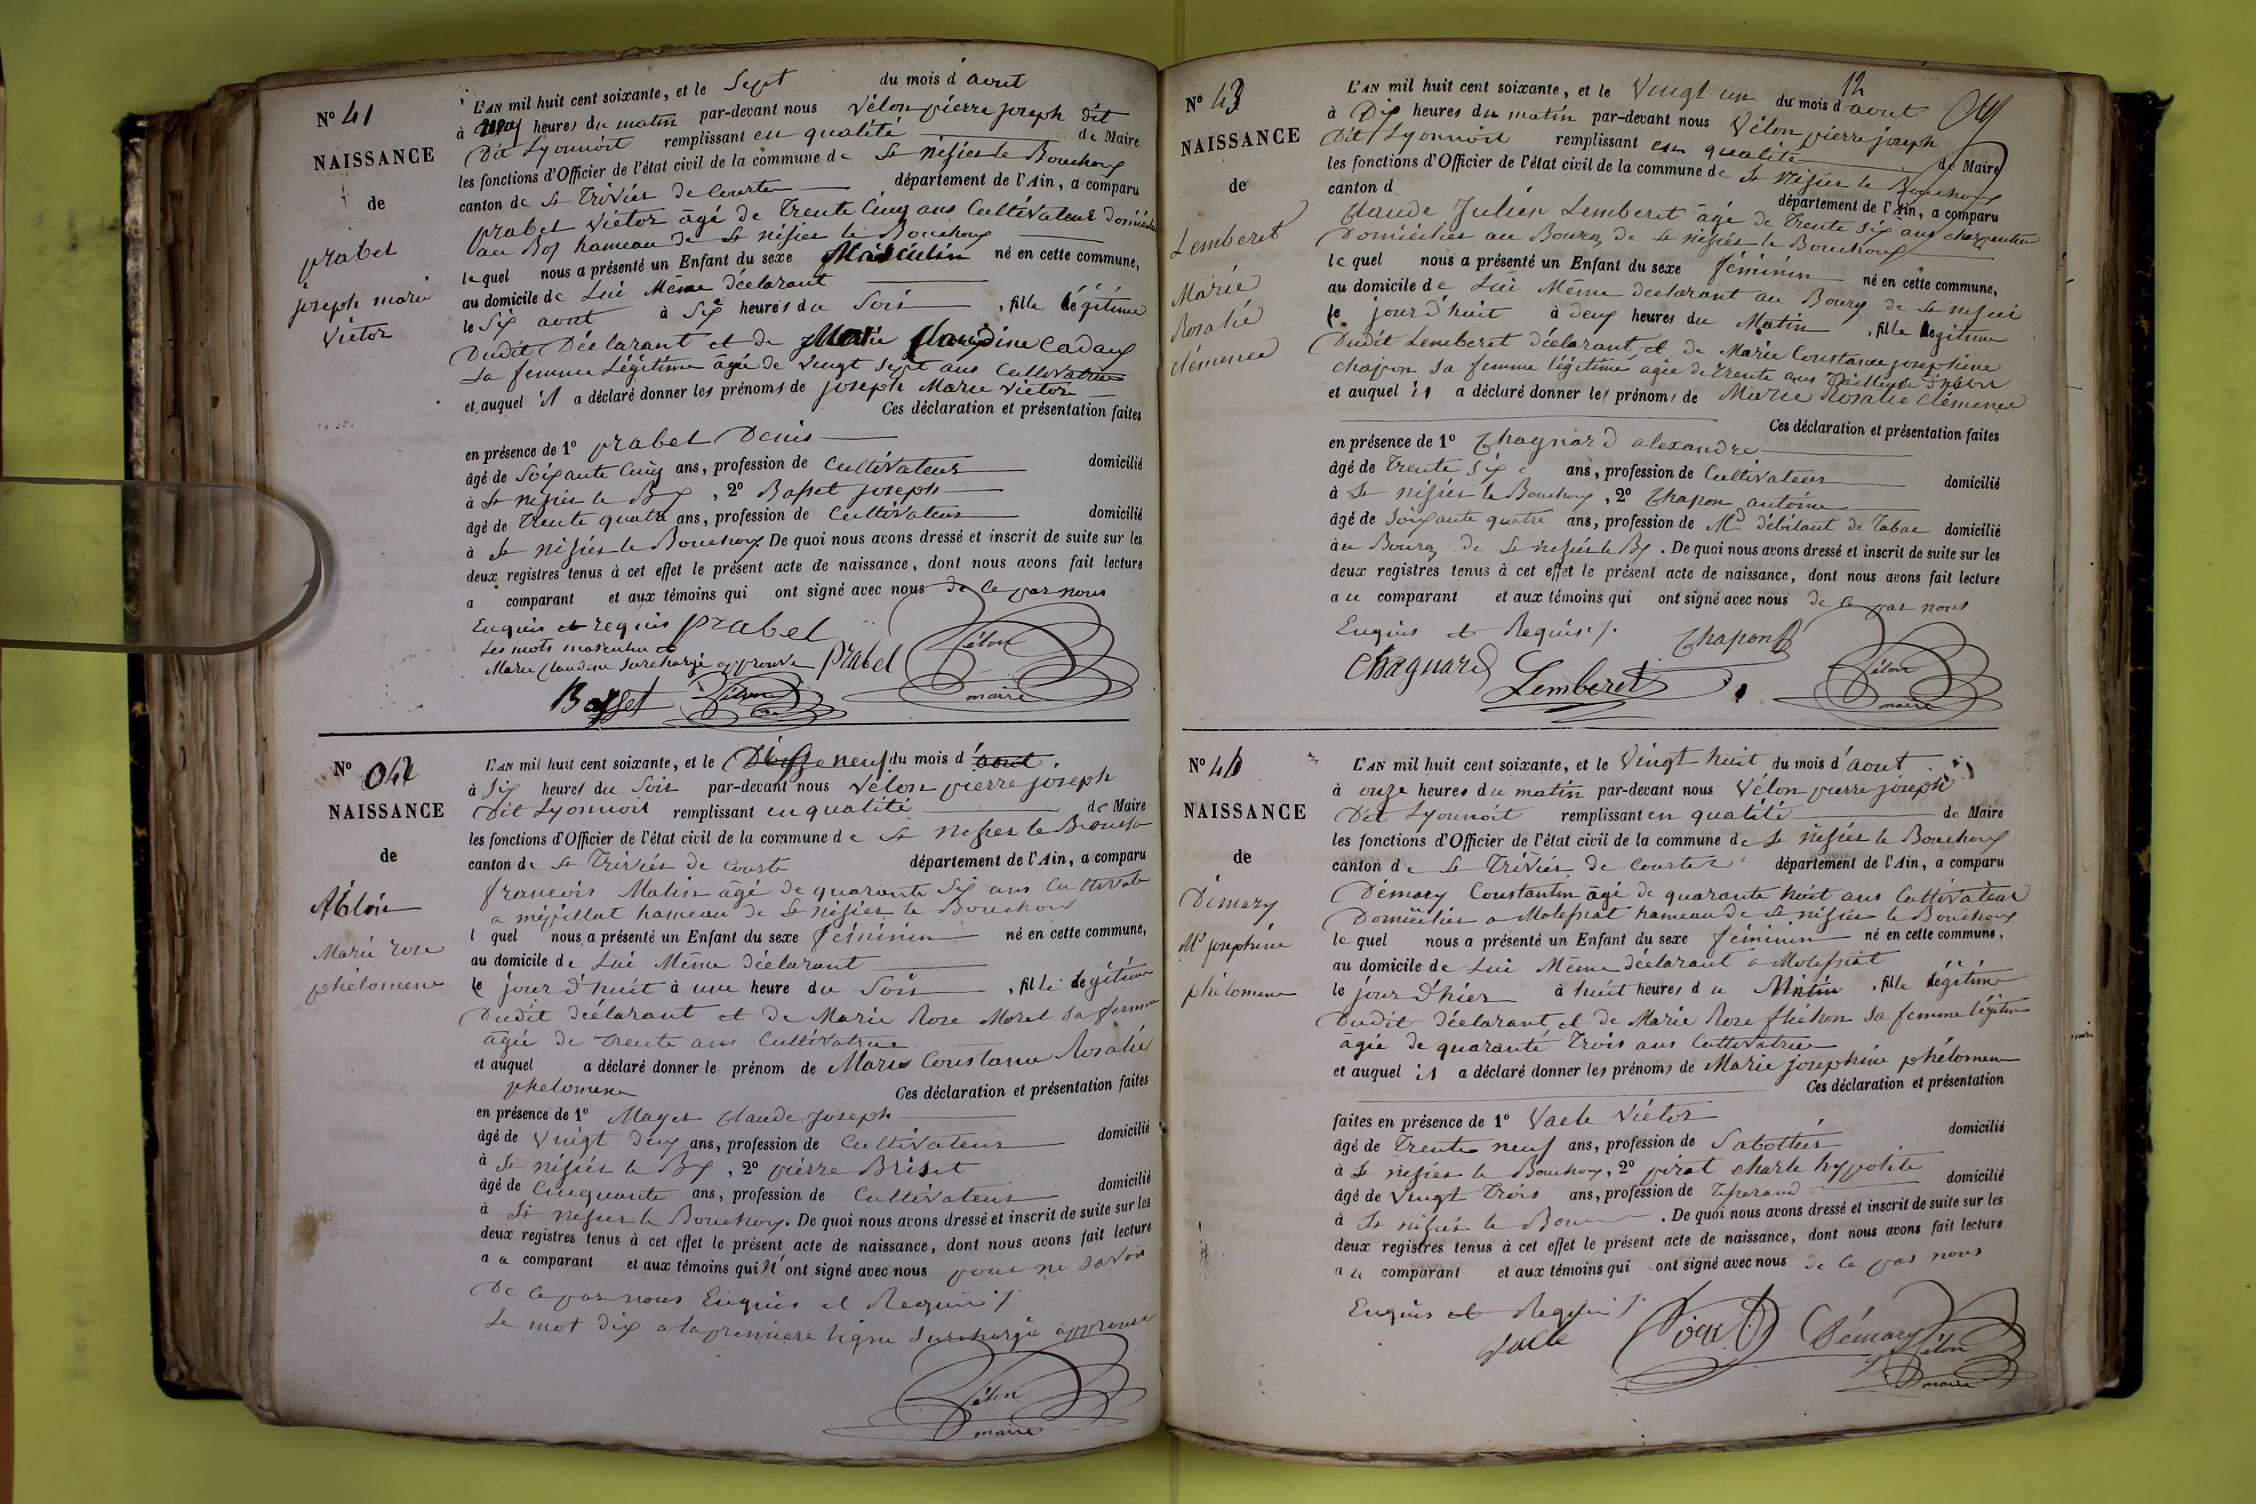 N° 41
NAISSANCE
de
prabel
joseph marie
Victor
L'AN mil huit cent soixante, et le Sept du mois d'aout
à heures du matin par-devant nous Vélon pierre joseph dit
Dit Lyonnoit remplissant en qualité de Maire
les fonctions d'Officier de l'état civil de la commune de St nisier le Bouchoux
canton de St Trivier de Courte département de l'Ain, a comparu
prabel Victor âgé de Trente Cinq ans Cultivateur domicilié
au Bos hameau de St nisier le Bouchoux
lequel nous a présenté un Enfant du sexe Masculin né en cette commune,
au domicile de Lui Même déclarant
le Six aout à Six heures du Soir, fille légitime
Dudit Déclarant et de Marie Claudine Cadax
sa femme Légitime âgée de vingt sept ans Cultivatrice
et auquel il a déclaré donner les prénoms de joseph Marie Victor
Ces déclaration et présentation faites
en présence de 1° prabel Denis
âgé de Soixante Cinq ans, profession de Cultivateur domicilié
à St nisier le Bx, 2° Basset joseph
âgé de Trente quatre ans, profession de Cultivateur domicilié
à St nisier le Bouchoux. De quoi nous avons dressé et inscrit de suite sur les
deux registres tenus à cet effet le présent acte de naissance, dont nous avons fait lecture
a comparant et aux témoins qui ont signé avec nous de ce par nous
Enquis et requis prabel
Les mots masculin et
Marie Claudine surchargé approuvé prabel Vélon
maire
Basset Vélon
N° 042
NAISSANCE
de
Marie rose
phélomene
L'AN mil huit cent soixante, et le Dixe neuf du mois d'aout
à Six heures du Soir par-devant nous Vélon pierre joseph
Dit Lyonnoit remplissant en qualité de Maire
les fonctions d'Officier de l'état civil de la commune de St nisier le Bouchoux
canton de St Trivier de Courte département de l'Ain, a comparu
francois Malin âgé de quarante Six ans Cultivate
a mépillat hameau de St nisier le Bouchoux
l quel nous a présenté un Enfant du sexe féminin né en cette commune,
au domicile de Lui Même déclarant
le jour d'huit à une heure du Soir, fille légitime
Dudit déclarant et de Marie Rose Morel sa femme
âgée de trente ans Cultivatrice
et auquel a déclaré donner le prénom de Marie Constance Rosalie
phélomene Ces déclaration et présentation faites
en présence de 1° Mayer Claude Joseph
âgé de vingt deux ans, profession de Cultivateur domicilié
à St nisier le Bx, 2° pierre Briset
âgé de Cinquante ans, profession de Cultivateur domicilié
à St nisier le Bouchoux. De quoi nous avons dressé et inscrit de suite sur les
deux registres tenus à cet effet le présent acte de naissance, dont nous avons fait lecture
a u comparant et aux témoins qui n'ont signé avec nous pour ne savoir
De ce par nous Enquis et Requis
Le mot dix a la premiere ligne surchargé approuvé
Vélon
maire
N° 43
NAISSANCE
de
Lemberet
Marie
Rosalie
clémence
L'AN mil huit cent soixante, et le Vingt un du mois d'aout
à Dix heures du matin par-devant nous Vélon pierre joseph
Dit Lyonnoit remplissant en qualité de Maire
les fonctions d'Officier de l'état civil de la commune de St nisier le Bouchoux
canton d département de l'Ain, a comparu
Claude Julien Lemberet âgé de Trente six ans charpentier
Domicilier au Bourg de St nisier le Bouchoux
le quel nous a présenté un Enfant du sexe féminin né en cette commune,
au domicile de Lui Même declarant au Bourg de St nisier
le jour d'huit à deux heures du Matin, fille légitime
Dudit Lemberet déclarant et de Marie Constance josephine
chapon sa femme légitime âgée de trente ans
et auquel il a déclaré donner les prénoms de Marie Rosalie Clémence
Ces déclaration et présentation faites
en présence de 1° Chagnard alexandre
âgé de Trente six ans, profession de Cultivateur domicilié
à St nisier le Bouchoux, 2° Chapon antoine
âgé de Soixante quatre ans, profession de Md débitant de Tabac domicilié
au Bourg de St nisier le Bx. De quoi nous avons dressé et inscrit de suite sur les
deux registres tenus à cet effet le présent acte de naissance, dont nous avons fait lecture
a u comparant et aux témoins qui ont signé avec nous de ce par nous
Enquis et Requis Chapon
Chagnard Lemberet Vélon
maire
N° 44
NAISSANCE
de
Démary
Me josephine
phélomene
L'AN mil huit cent soixante, et le Vingt huit du mois d'aout
à onze heures du matin par-devant nous Vélon pierre joseph
Dit Lyonnoit remplissant en qualité de Maire
les fonctions d'Officier de l'état civil de la commune de St nisier le Bouchoux
canton de St Trivier de Courtes département de l'Ain, a comparu
Démary Constantin âgé de quarante huit ans Cultivateur
Domicilier a Molessiat hameau de St nisier le Bouchoux
le quel nous a présenté un Enfant du sexe féminin né en cette commune,
au domicile de Lui Même déclarant a Molessiat
le jour d'hier à huit heures d u Matin, fille légitime
Dudit déclarant et de Marie Rose sa femme légitime
âgée de quarante Trois ans Cultivatrice
et auquel il a déclaré donner les prénoms de Marie josephine phélomene
Ces déclaration et présentation
faites en présence de 1° Vacle Victor
âgé de Trente neuf ans, profession de Sabottier domicilié
à St nisier le Bouchoux, 2° pirat charle hypolite
âgé de Vingt Trois ans, profession de domicilié
à St nisier le Bou. De quoi nous avons dressé et inscrit de suite sur les
deux registres tenus à cet effet le présent acte de naissance, dont nous avons fait lecture
a u comparant et aux témoins qui ont signé avec nous de ce par nous
Enquis et Requis
Vacle Démary Vélon
maire